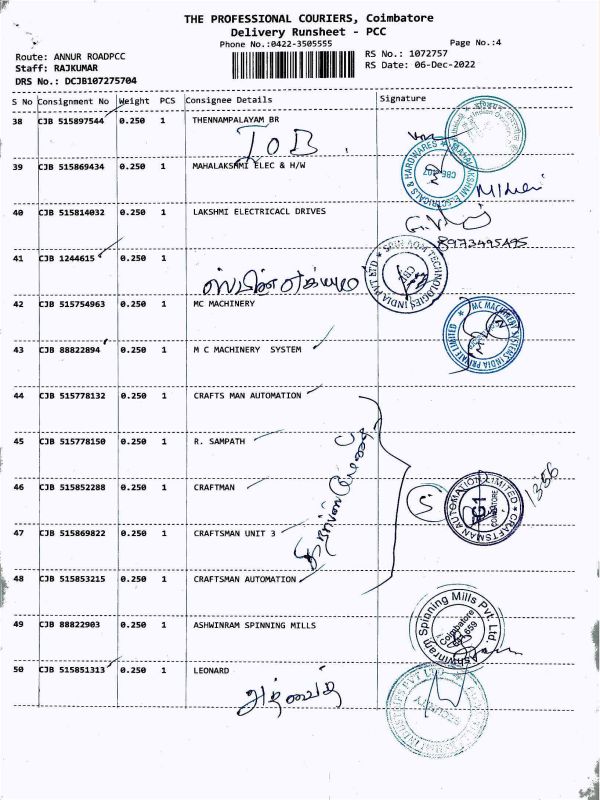 THE PROFESSIONAL COURIERS, Coimbatore
Delivery Runsheet - PCC
Phone No.:0422-3505555
Page No.:4
Route: ANNUR ROADPCC
Staff: RAJKUMAR
DRS No.: DCJB107275704
RS No.: 1072757
RS Date: 06-Dec-2022
S No Consignment No Weight PCS Consignee Details Signature
38 CJB 515897544 0.250 1 THENNAMPALAYAM BR
IOB
39 CJB 515869434 0.250 1 MAHALAKSHMI ELEC & H/W
MAHALAKSHMI ELECTRICALS & HARDWARES
40 CJB 515814032 0.250 1 LAKSHMI ELECTRICACL DRIVES
8973495495
41 CJB 1244615 0.250 1
TECHNOLOGIES INDIA PVT LTD
CBE
42 CJB 515754963 0.250 1 MC MACHINERY
MC MACHINERY SYSTEMS INDIA PRIVATE LIMITED
43 CJB 88822894 0.250 1 M C MACHINERY SYSTEM
44 CJB 515778132 0.250 1 CRAFTS MAN AUTOMATION
45 CJB 515778150 0.250 1 R. SAMPATH
46 CJB 515852288 0.250 1 CRAFTMAN
CRAFTSMAN AUTOMATION LIMITED
COIMBATORE
1356
47 CJB 515869822 0.250 1 CRAFTSMAN UNIT 3
48 CJB 515853215 0.250 1 CRAFTSMAN AUTOMATION
49 CJB 88822903 0.250 1 ASHWINRAM SPINNING MILLS
Ashwinram Spinning Mills Pvt. Ltd.
Coimbatore
50 CJB 515851313 0.250 1 LEONARD
SECURITY